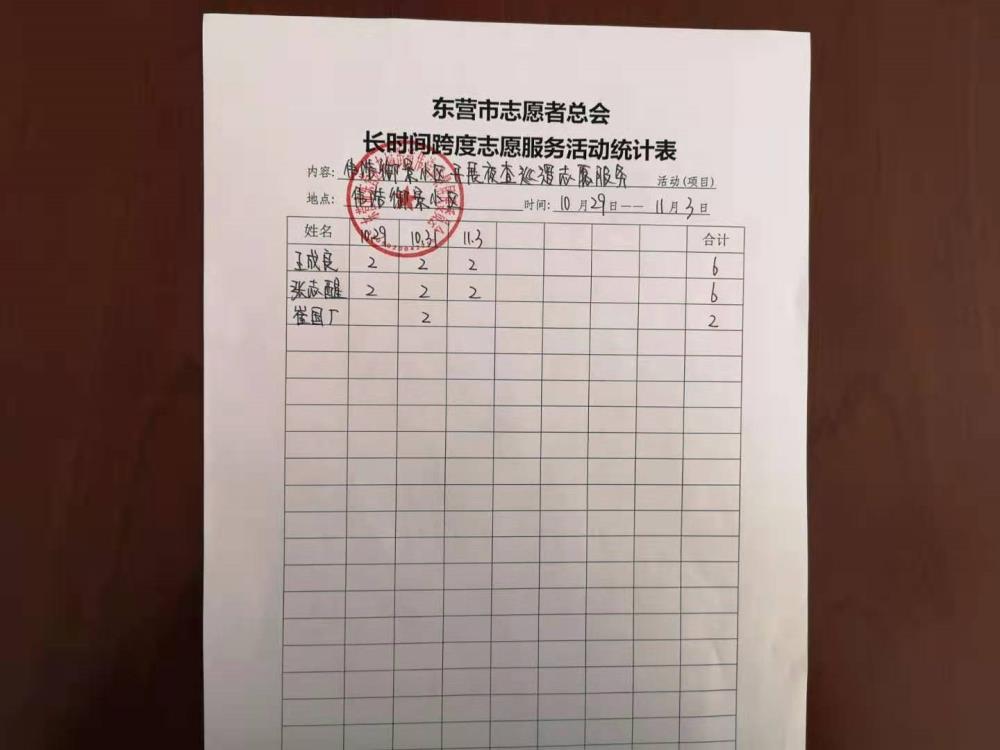 东营市志愿者总会
长时间跨度志愿服务活动统计表
内容: 伟浩御景小区开展夜查巡逻志愿服务 活动(项目)
地点: 伟浩御景小区 时间: 10月29日——11月3日
姓名 10.29 10.31 11.3 合计
王成良 2 2 2 6
张志醒 2 2 2 6
崔国厂 2 2